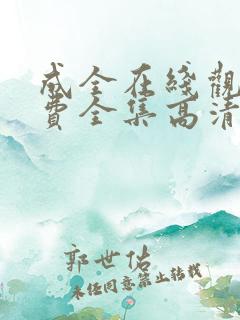 成全在线觀
费全集高清
郭世佑
未经同意禁止转载